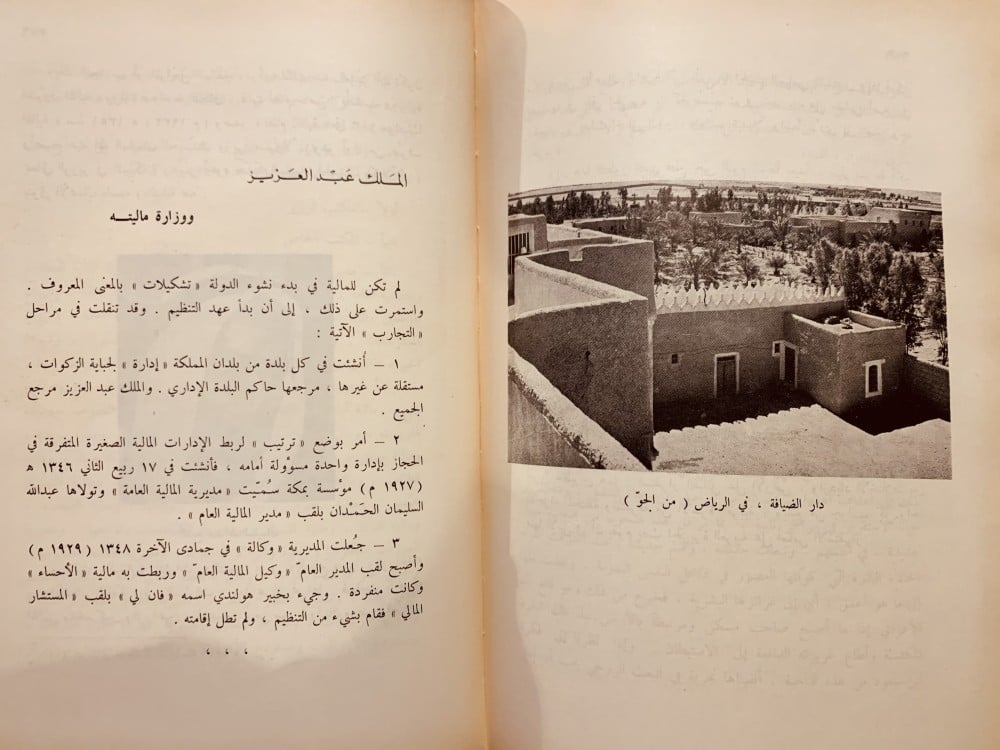 دار الضيافة ، في الرياض ( من الجوّ )
المَلك عَبْد العَزيز
ووزارة ماليته
لم تكن للمالية في بدء نشوء الدولة « تشكيلات » بالمعنى المعروف .
واستمرت على ذلك ، إلى أن بدأ عهد التنظيم . وقد تنقلت في مراحل
« التجارب » الآتية :
١ – أنشئت في كل بلدة من بلدان المملكة « إدارة » لجباية الزكوات ،
مستقلة عن غيرها ، مرجعها حاكم البلدة الإداري . والملك عبد العزيز مرجع
الجميع .
٢ – أمر بوضع « ترتيب » لربط الإدارات المالية الصغيرة المتفرقة في
الحجاز بإدارة واحدة مسؤولة أمامه ، فأنشئت في ١٧ ربيع الثاني ١٣٤٦ ه
( ١٩٢٧ م ) مؤسسة بمكة سُمّيت « مديرية المالية العامة » وتولاها عبدالله
السليمان الحَمْدان بلقب « مدير المالية العام » .
٣ – جُعلت المديرية « وكالة » في جمادى الآخرة ١٣٤٨ ( ١٩٢٩ م )
وأصبح لقب المدير العامّ « وكيل المالية العامّ » وربطت به مالية « الأحساء »
وكانت منفردة . وجيء بخبير هولندي اسمه « فان لي » بلقب « المستشار
المالي » فقام بشيء من التنظيم ، ولم تطل إقامته .
، ، ،